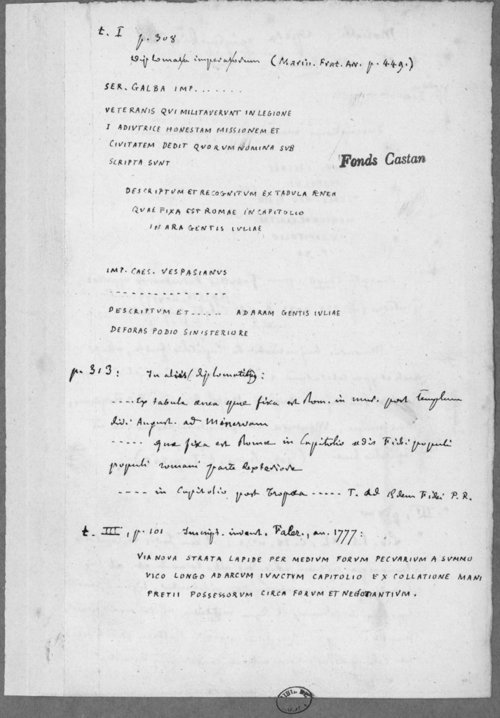 t. I
p. 308
Diplomata imperatorum (Marin. Frat. Arv. p. 449.)
SER. GALBA IMP. . . . . . . .
VETERANIS QUI MILITAVERUNT IN LEGIONE
I ADIUTRICE HONESTAM MISSIONEM ET
CIVITATEM DEDIT QUORUM NOMINA SUB
SCRIPTA SUNT
Fonds Castan
DESCRIPTUM ET RECOGNITUM EX TABULA ÆNEA
QUAE FIXA EST ROMAE IN CAPITOLIO
IN ARA GENTIS IULIAE
IMP. CAES. VESPASIANUS
- - - - - - - - - - - - - - -
DESCRIPTUM ET...... AD ARAM GENTIS IULIAE
DEFORAS PODIO SINISTERIORE
p. 313: In aliis diplomatibus:
---- Ex tabula ænea quæ fixa est Rom. in mur. post templum
divi August. ad Minervam
----- quæ fixa est Romæ in Capitolio ædis Fidei populi
populi romani parte dexteriore
---- in Capitolio post tropæa ----- T. ad ædem Fidei P. R.
t. III, p. 101 Inscript. invent. Faler., an. 1777:
VIA NOVA STRATA LAPIDE PER MEDIUM FORUM PECUARIUM A SUMMO
VICO LONGO AD ARCUM IUNCTUM CAPITOLIO EX COLLATIONE MANI
PRETII POSSESSORUM CIRCA FORUM ET NEGOTIANTIUM.